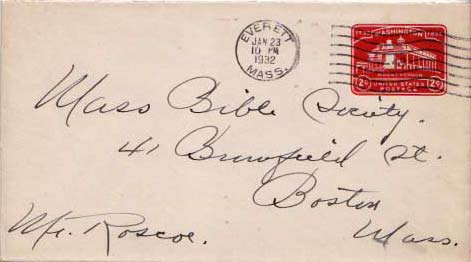 EVERETT
JAN 23
10 PM
1932
MASS.
WASHINGTON
MOUNT VERNON
UNITED STATES
2¢ POSTAGE 2¢
Mass Bible Society.
41 Bromfield St.
Boston
Mass.
Mr. Roscoe.